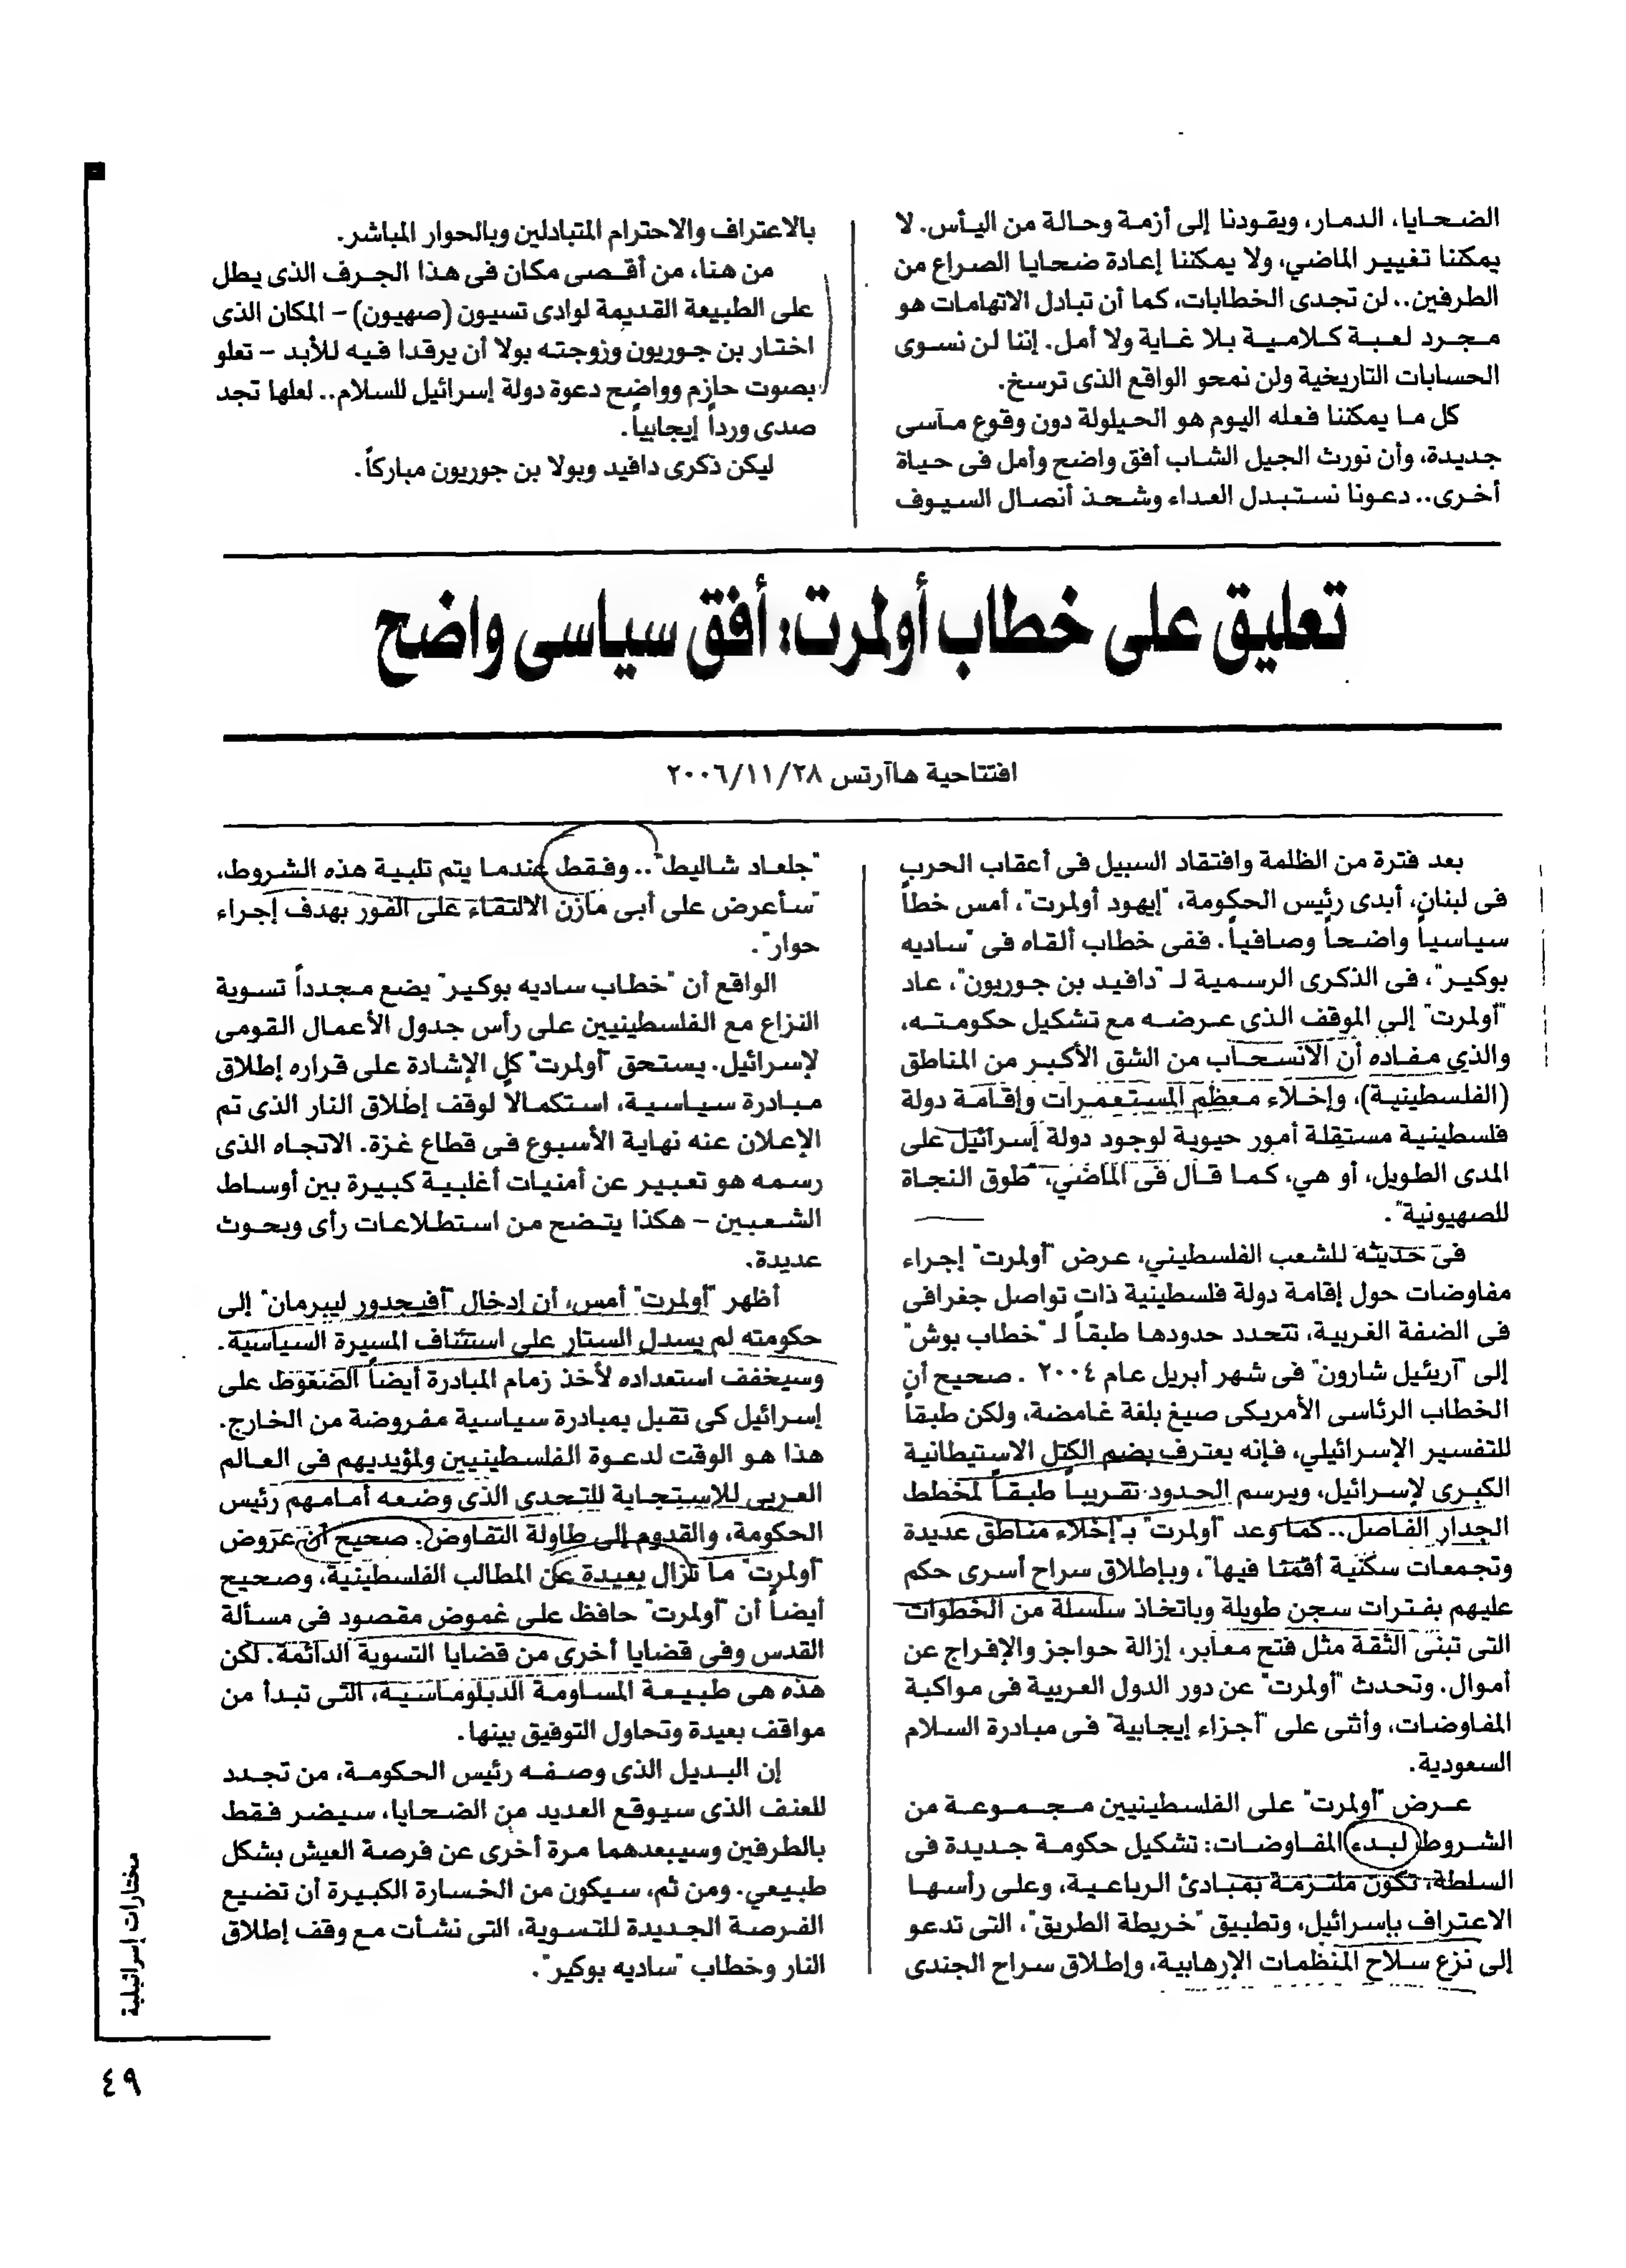 الضحايا، الدمار، ويقودنا إلى أزمة وحالة من اليأس. لا
يمكننا تغيير الماضي، ولا يمكننا إعادة ضحايا الصراع من
الطرفين.. لن تجدى الخطابات، كما أن تبادل الاتهامات هو
مجرد لعبة كلامية بلا غاية ولا أمل. إننا لن نسوى
الحسابات التاريخية ولن نمحو الواقع الذى ترسخ.
كل ما يمكننا فعله اليوم هو الحيلولة دون وقوع مآسى
جديدة، وأن نورث الجيل الشاب أفق واضح وأمل فى حياة
أخرى.. دعونا نستبدل العداء وشحذ أنصال السيوف
بالاعتراف والاحترام المتبادلين وبالحوار المباشر.
من هنا، من أقصى مكان فى هذا الجرف الذى يطل
على الطبيعة القديمة لوادى تسيون (صهيون) – المكان الذى
اختار بن جوريون وزوجته بولا أن يرقدا فيه للأبد – تعلو
بصوت حازم وواضح دعوة دولة إسرائيل للسلام.. لعلها تجد
صدى ورداً إيجابياً.
ليكن ذكرى دافيد وبولا بن جوريون مباركاً.
تعليق على خطاب أولمرت: أفق سياسى واضح
افتتاحية هاآرتس ٢٠٠٦/١١/٢٨
بعد فترة من الظلمة وافتقاد السبيل فى أعقاب الحرب
فى لبنان، أبدى رئيس الحكومة، "إيهود أولمرت"، أمس خطاً
سياسياً واضحاً وصافياً. ففى خطاب ألقاه فى "ساديه
بوكير"، فى الذكرى الرسمية لـ "دافيد بن جوريون"، عاد
"أولمرت" إلي الموقف الذي عرضه مع تشكيل حكومته،
والذي مفاده أن الانسحاب من الشق الأكبر من المناطق
(الفلسطينية)، وإخلاء معظم المستعمرات وإقامة دولة
فلسطينية مستقلة أمور حيوية لوجود دولة إسرائيل على
المدى الطويل، أو هي، كما قال فى الماضي، "طوق النجاة
للصهيونية".
فى حديثه للشعب الفلسطيني، عرض "أولمرت" إجراء
مفاوضات حول إقامة دولة فلسطينية ذات تواصل جغرافى
فى الضفة الغربية، تتحدد حدودها طبقاً لـ "خطاب بوش"
إلى "آريئيل شارون" فى شهر أبريل عام ٢٠٠٤ . صحيح أن
الخطاب الرئاسى الأمريكى صيغ بلغة غامضة، ولكن طبقاً
للتفسير الإسرائيلي، فإنه يعترف بضم الكتل الاستيطانية
الكبرى لإسرائيل، ويرسم الحدود تقريباً طبقاً لمخطط
الجدار الفاصل.. كما وعد "أولمرت" بـ"إخلاء مناطق عديدة
وتجمعات سكنية أقمنا فيها"، وبإطلاق سراح أسرى حكم
عليهم بفترات سجن طويلة وباتخاذ سلسلة من الخطوات
التى تبنى الثقة مثل فتح معابر، إزالة حواجز والإفراج عن
أموال. وتحدث "أولمرت" عن دور الدول العربية فى مواكبة
المفاوضات، وأثنى على "أجزاء إيجابية" فى مبادرة السلام
السعودية.
عرض "أولمرت" على الفلسطينيين مجموعة من
الشروط لبدء المفاوضات: تشكيل حكومة جديدة فى
السلطة، تكون ملتزمة بمبادئ الرباعية، وعلى رأسها
الاعتراف بإسرائيل، وتطبيق "خريطة الطريق"، التى تدعو
إلى نزع سلاح المنظمات الإرهابية، وإطلاق سراح الجندى
"جلعاد شاليط".. وفقط عندما يتم تلبية هذه الشروط،
"سأعرض على أبى مازن الالتقاء على الفور بهدف إجراء
حوار".
الواقع أن "خطاب ساديه بوكير" يضع مجدداً تسوية
النزاع مع الفلسطينيين على رأس جدول الأعمال القومى
لإسرائيل. يستحق "أولمرت" كل الإشادة على قراره إطلاق
مبادرة سياسية، استكمالاً لوقف إطلاق النار الذى تم
الإعلان عنه نهاية الأسبوع فى قطاع غزة. الاتجاه الذى
رسمه هو تعبير عن أمنيات أغلبية كبيرة بين أوساط
الشعبين – هكذا يتضح من استطلاعات رأى وبحوث
عديدة.
أظهر "أولمرت" أمس، أن إدخال "أفيجدور ليبرمان" إلى
حكومته لم يسدل الستار على استئناف المسيرة السياسية.
وسيخفف استعداده لأخذ زمام المبادرة أيضاً الضغوط على
إسرائيل كى تقبل بمبادرة سياسية مفروضة من الخارج.
هذا هو الوقت لدعوة الفلسطينيين ولمؤيديهم فى العالم
العربى للاستجابة للتحدى الذى وضعه أمامهم رئيس
الحكومة، والقدوم إلى طاولة التفاوض. صحيح أن عروض
"أولمرت" ما تزال بعيدة عن المطالب الفلسطينية، وصحيح
أيضاً أن "أولمرت" حافظ على غموض مقصود فى مسألة
القدس وفى قضايا أخرى من قضايا التسوية الدائمة. لكن
هذه هى طبيعة المساومة الدبلوماسية، التى تبدأ من
مواقف بعيدة وتحاول التوفيق بينها.
إن البديل الذى وصفه رئيس الحكومة، من تجدد
للعنف الذى سيوقع العديد من الضحايا، سيضر فقط
بالطرفين وسيبعدهما مرة أخرى عن فرصة العيش بشكل
طبيعي. ومن ثم، سيكون من الخسارة الكبيرة أن تضيع
الفرصة الجديدة للتسوية، التى نشأت مع وقف إطلاق
النار وخطاب "ساديه بوكير".
مختارات إسرائيلية
٤٩